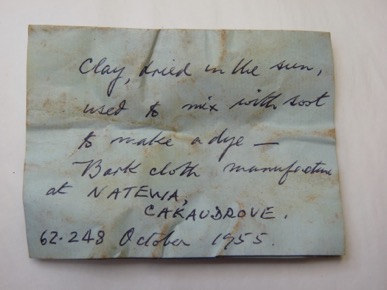 Clay, dried in the sun,
used to mix with soot
to make a dye —
Bark cloth manufacture
at NATEWA,
CAKAUDROVE.
62-248 October 1955.